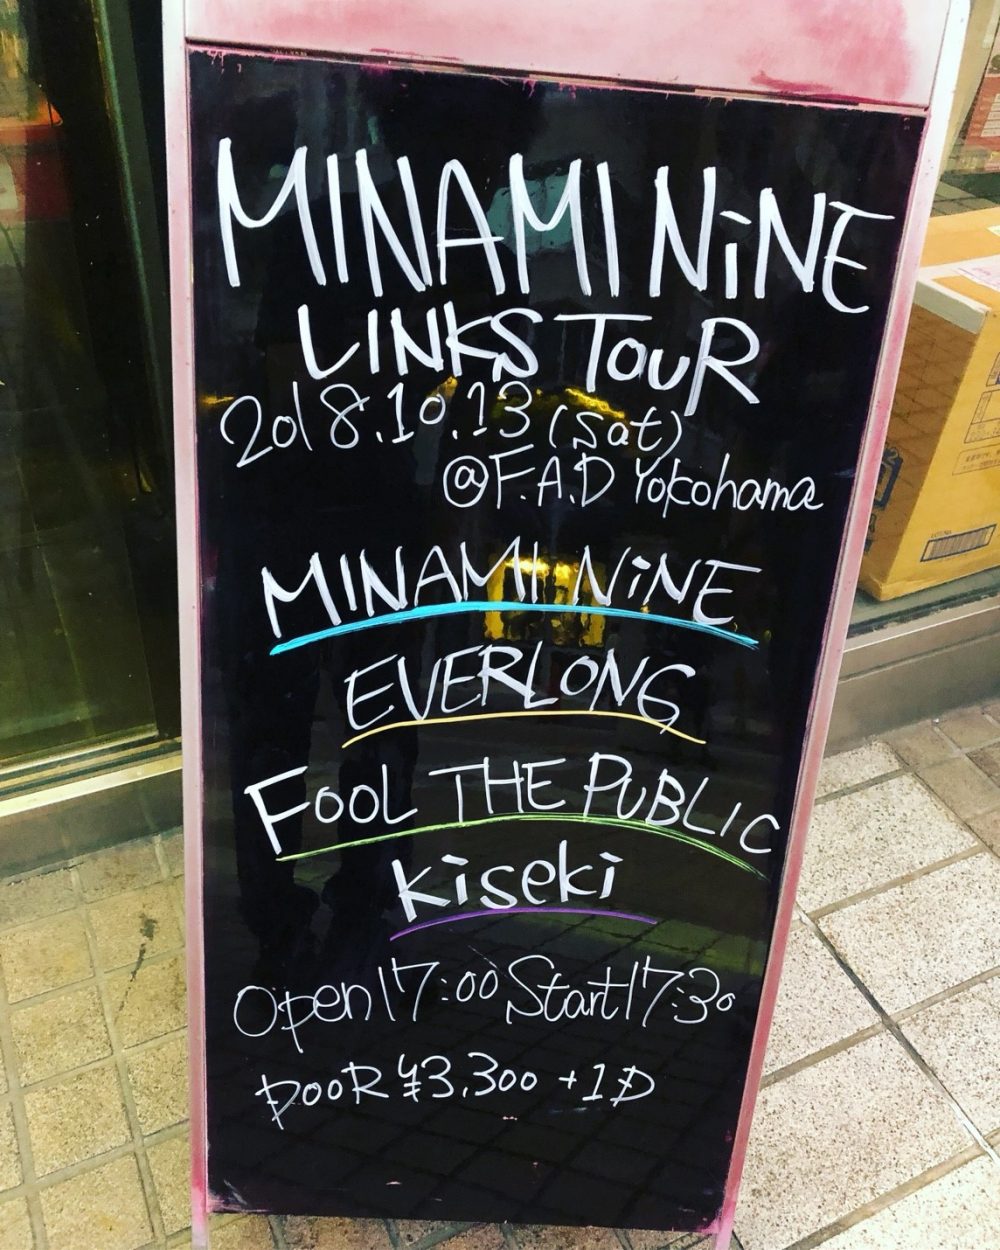 MINAMI NiNE
LINKS TOUR
2018.10.13 (Sat)
@F.A.D Yokohama
MINAMI NiNE
EVERLONG
FOOL THE PUBLIC
kiseki
Open17:00 Start17:30
DOOR ¥3,300 +1D